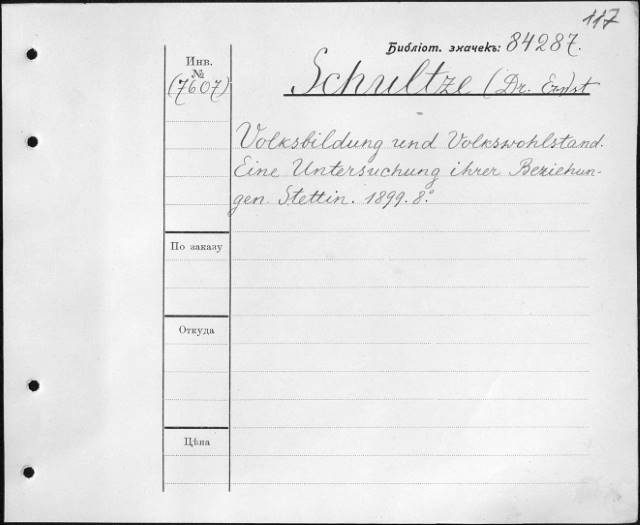 117
Библіот. значекъ: 84287.
Инв.
№
(7607)
Schultze (Dr. Ernst
Volksbildung und Volkswohlstand.
Eine Untersuchung ihrer Beziehun-
gen. Stettin. 1899. 8.°
По заказу
Откуда
Цѣна